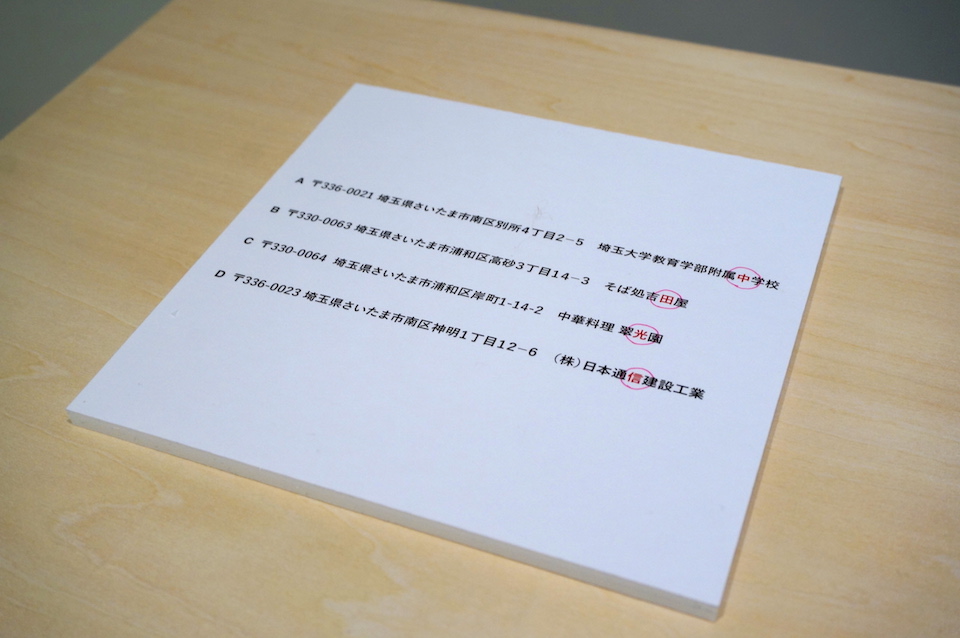 A 〒336-0021 埼玉県さいたま市南区別所4丁目2−5 埼玉大学教育学部附属中学校
B 〒330-0063 埼玉県さいたま市浦和区高砂3丁目14−3 そば処吉田屋
C 〒330-0064 埼玉県さいたま市浦和区岸町1-14-2 中華料理 翠光園
D 〒336-0023 埼玉県さいたま市南区神明1丁目12−6 (株)日本通信建設工業